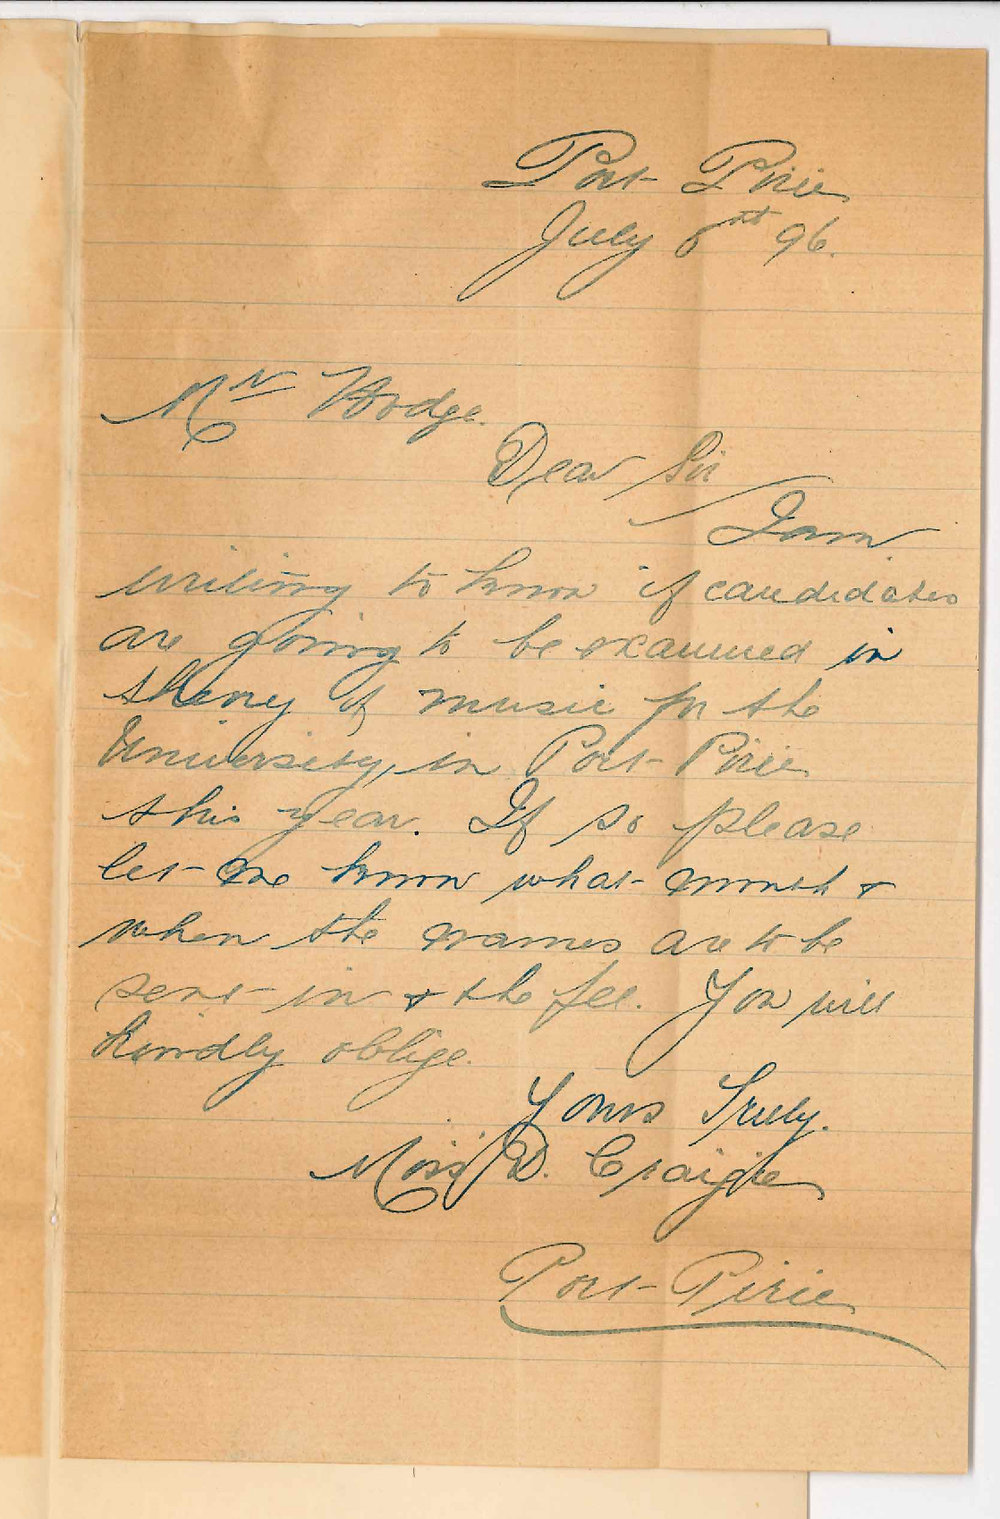 Port Pirie
July 8th 96.
Mr Hodge.
Dear Sir
I am
writing to know if candidates
are going to be examined in
theory of music for the
University, in Port Pirie
this year. If so please
let me know what month &
when the names are to be
sent in & the fee. You will
kindly oblige.
Yours Truly.
Miss D. Craigie
Port Pirie